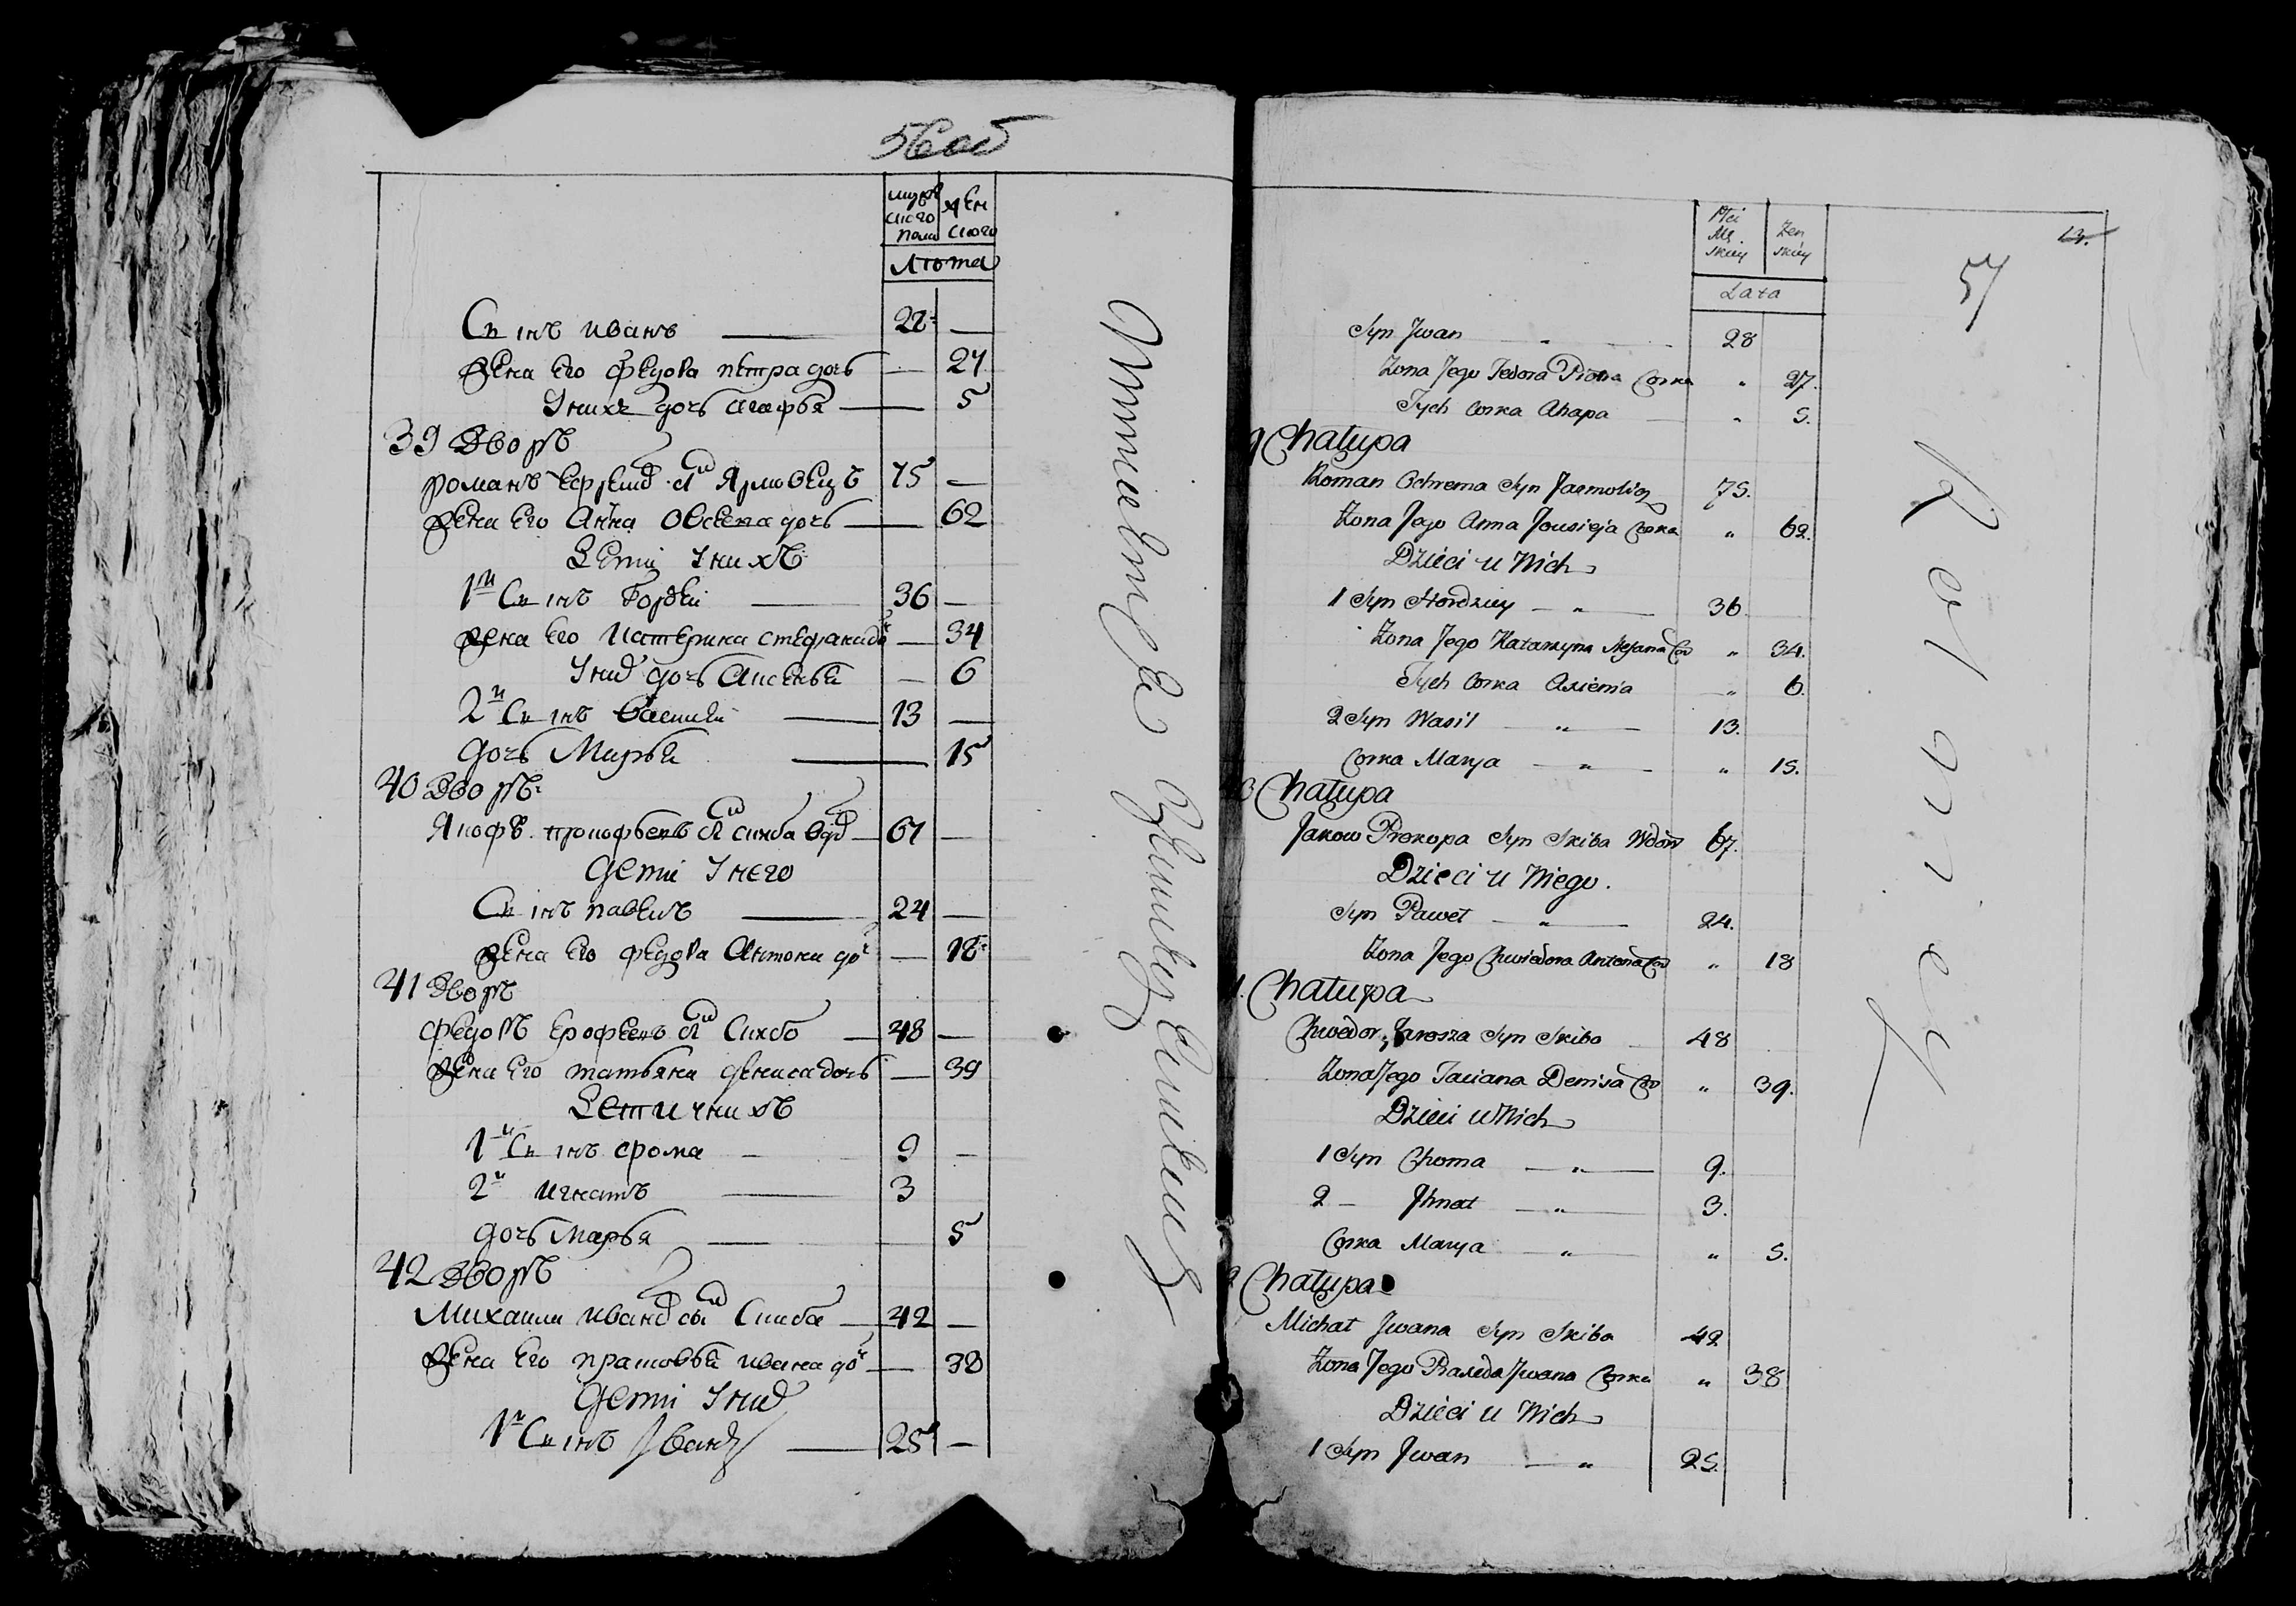 56 об
мужс
ского
пола
жен
ского
Лѣта
Сынъ иванъ 28 —
жена Его федора петра дочь — 27
Унихъ дочь агафья — 5
39 Дворъ
романъ Ефрема сынъ Ярмовецъ 75 —
жена Его Анна Овсея дочь — 62
Дети Унихъ
1й Сынъ Гордей 36 —
жена Его Катерина стефана до — 34
Уних дочь Аксенья — 6
2й Сынъ Василей 13 —
дочь Марья — 15
40 Дворъ
Яковъ прокофьевъ сынъ скиба вдов 67 —
дети Унего
Сынъ павелъ 24 —
жена Его федора Антона доч — 18
41 Дворъ
федоръ Ерофеевъ сынъ Скибо 48 —
жена Его татьяна дениса дочь — 39
Дети унихъ
1й Сынъ фома 9 —
2й игнатъ 3
дочь Марья 5
42 Дворъ
Михаила иванов сынъ Скиба 42 —
жена Его прасковья ивана доч — 38
дети Уних
1й Сынъ Иванъ 25 —
57
13.
Płci
Mę
skiey
Żen
skiey
Lata
Syn Jwan 28
Żona Jego Fedora Piotra Corka " 27.
Tych Corka Ahapa " 5.
9 Chałupa
Roman Ochrema Syn Jarmolicz 75.
Żona Jego Anna Jousieja Corka " 62.
Dzieci u Nich
1 Syn Hordziey — " — 36
Żona Jego Katarzyna Stefana Cor " 34.
Tych Corka Axienia " 6.
2 Syn Wasil — " — 13.
Corka Marya — " — " 15.
Chałupa
Jakow Prokopa Syn Skiba Wdow 67.
Dzieci u Niego.
Syn Paweł — " — 24.
Żona Jego Chwiedora Antona Cor " 18
1. Chałupa
Chwedor Jarosza Syn Skibo 48
Żona Jego Taciana Denisa Cor " 39.
Dzieci u Nich
1 Syn Choma — " — 9.
2 — Jhnat — " — 3.
Corka Marya — " — " 5.
2 Chałupa
Michał Jwana Syn Skiba 42
Żona Jego Praxeda Jwana Corka " 38
Dzieci u Nich
1 Syn Jwan — " 25.